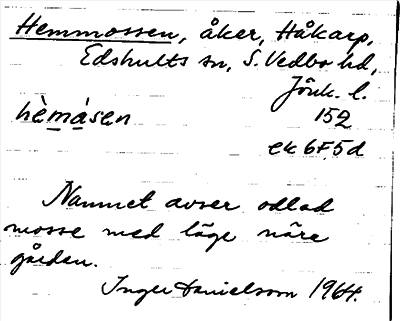 Hemmossen, åker, Håkarp,
Edshults sn, S. Vedbo hd,
Jönk. l.
hèmåsen 152
ek 6F5d
Namnet avser odlad
mosse med läge nära
gården.
Inger Danielsson 1964.